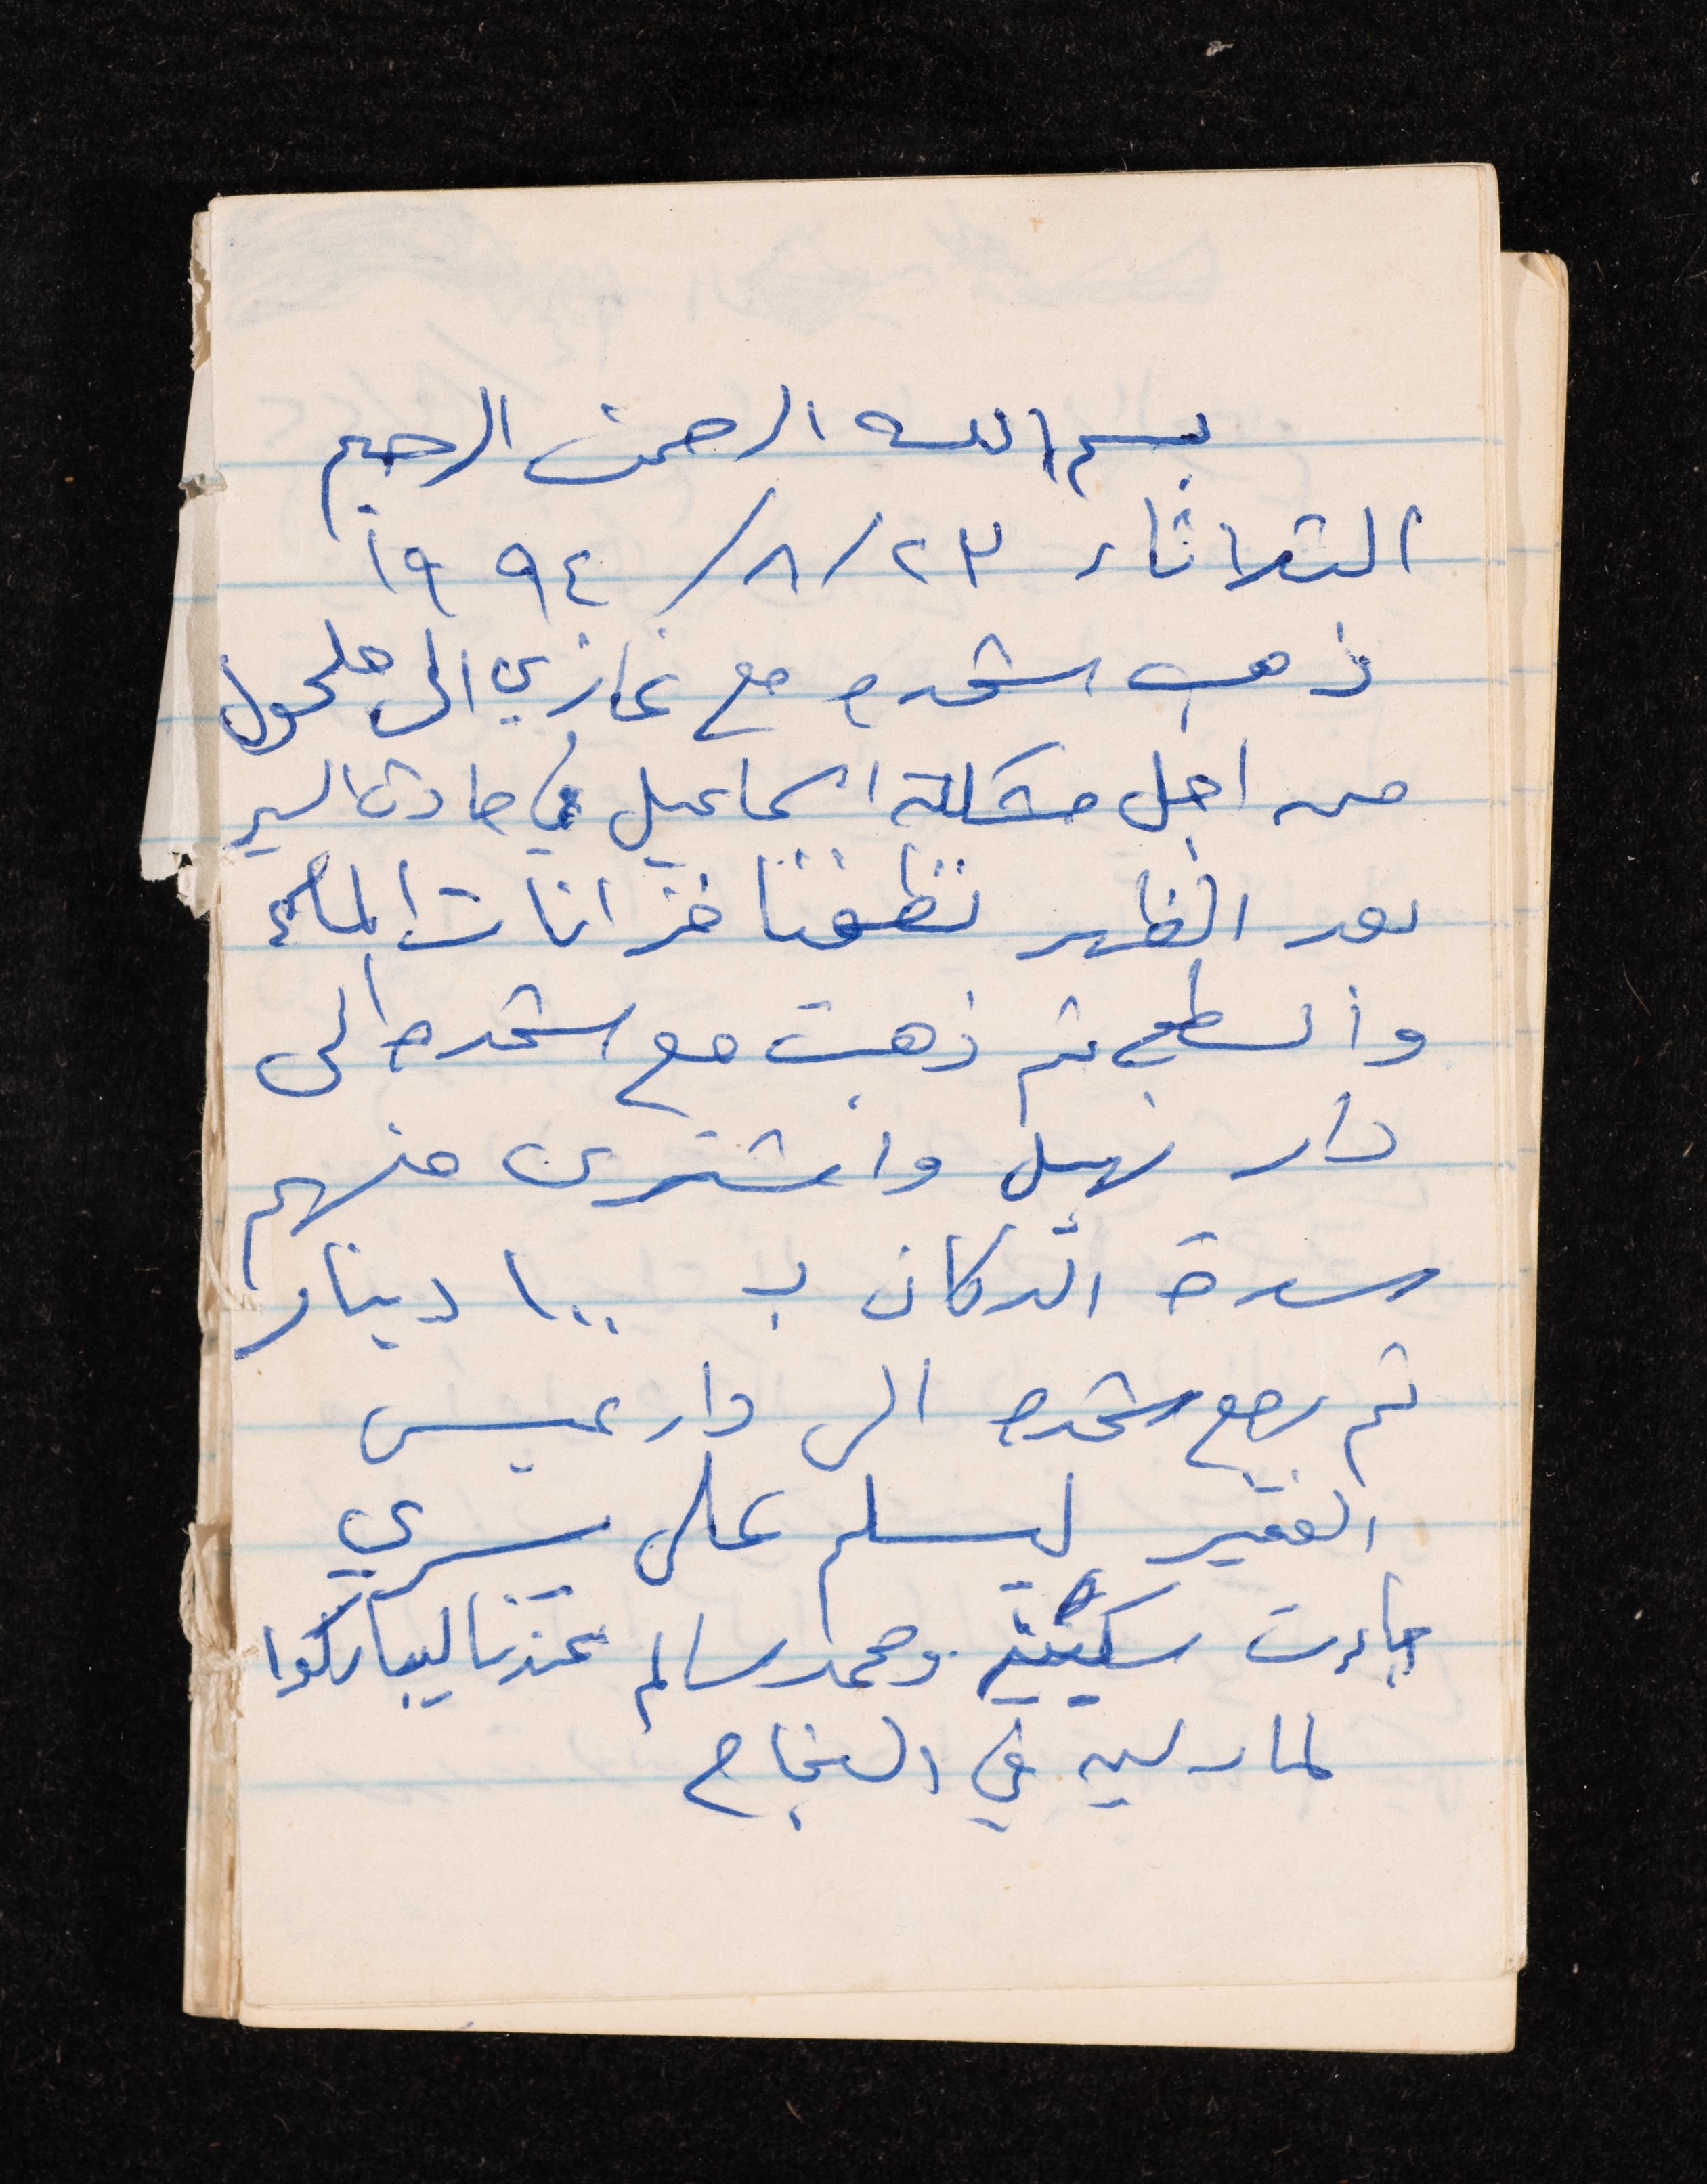 بسم الله الرحمن الرحيم
الثلاثاء ٢٣/٨/١٩٩٤
ذهب شحده مع غازي الى حلحول
من اجل مشكلة اسماعيل في حادث السير
بعد الظهر نظفنا خزانات الماء
والسطح ثم ذهبت مع شحده الى
دار نبيل واشترى منهم
سدة الدكان ب ١٠٠ دينار
ثم رجع شحده الى دار عيسى
الفقير ليسلم على يسري
جاءت سكينة ومحمد سالم عندنا ليباركوا
لمارليه في النجاح